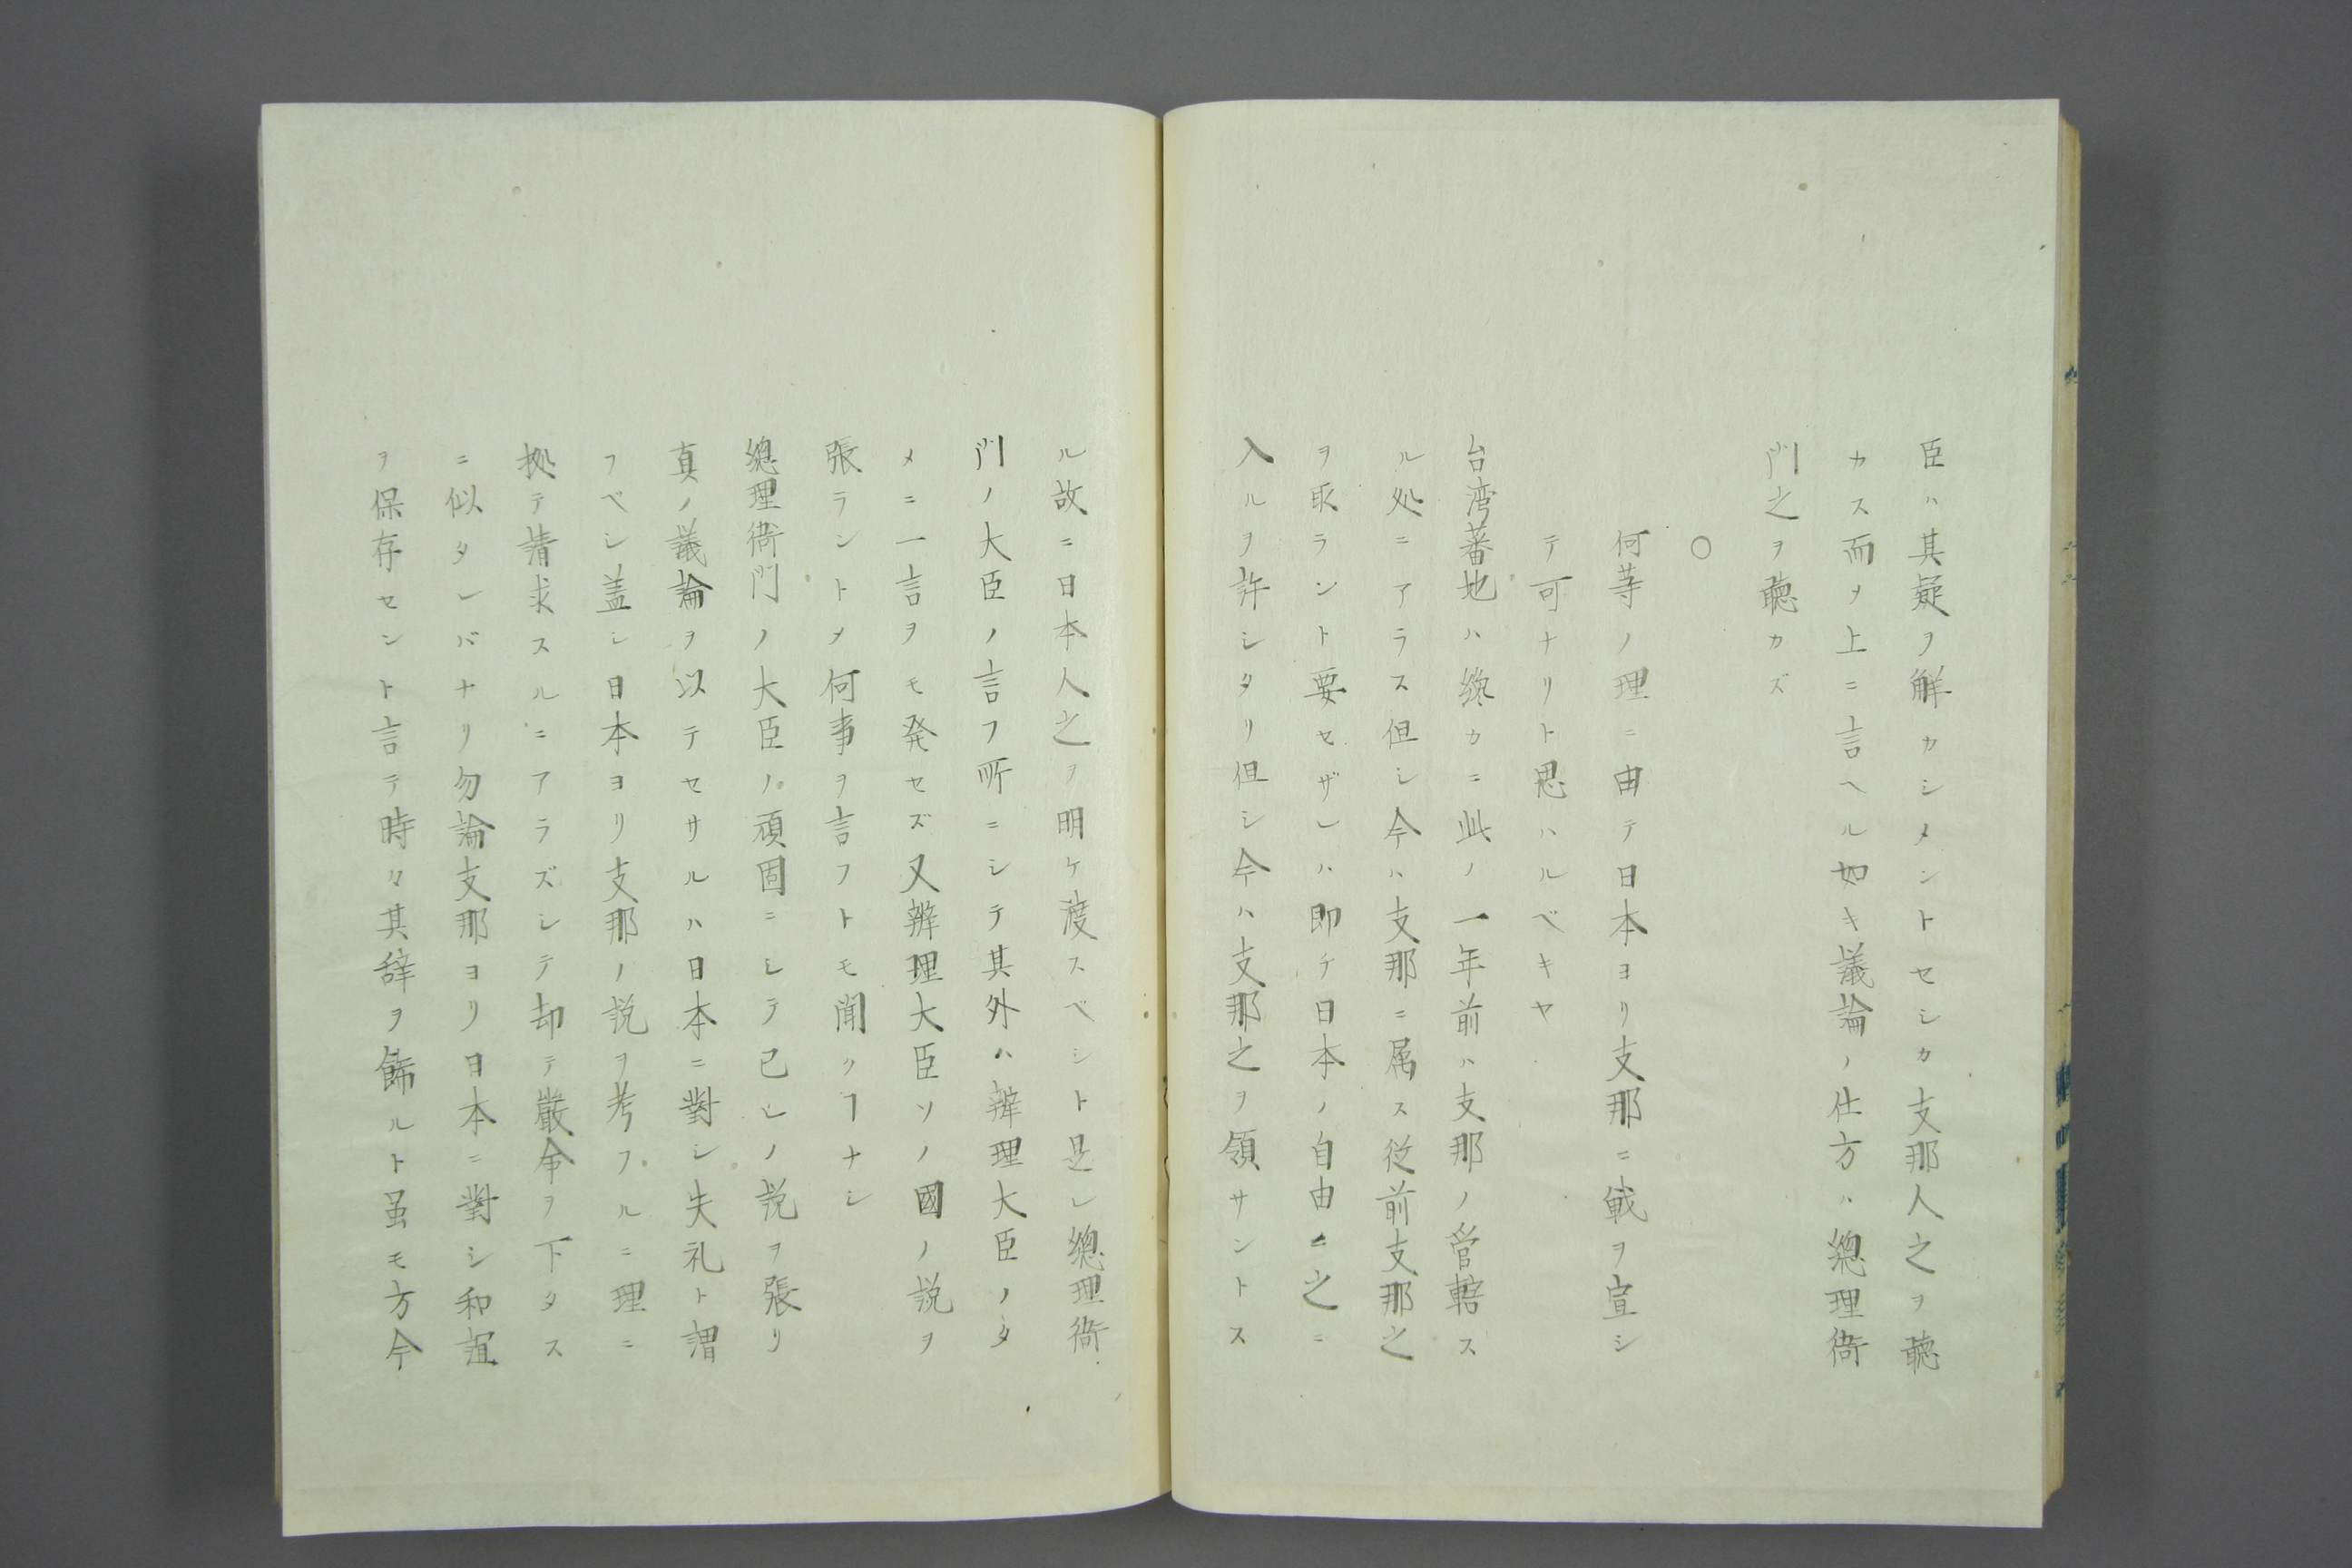 臣ハ其疑ヲ解カシメントセシカ支那人之ヲ聴
カス而ノ上ニ言ヘル如キ議論ノ仕方ハ總理衙
門之ヲ聴カズ
○
何等ノ理ニ由テ日本ヨリ支那ニ戦ヲ宣シ
テ可ナリト思ハルベキヤ
台湾蕃地ハ纔カニ此ノ一年前ハ支那ノ管轄ス
ル処ニアラス但シ今ハ支那ニ属ス従前支那之
ヲ取ラント要セザレハ即チ日本ノ自由ニ之ニ
入ルヲ許シタリ但シ今ハ支那之ヲ領サントス
ル故ニ日本人之ヲ明ケ渡スベシト是レ總理衙
門ノ大臣ノ言フ所ニシテ其外ハ辨理大臣ノタ
メニ一言ヲモ発セズ又辨理大臣ソノ國ノ説ヲ
張ラントメ何事ヲ言フトモ聞クヿナシ
總理衙門ノ大臣ノ頑固ニシテ己レノ説ヲ張リ
真ノ議論ヲ以テセサルハ日本ニ對シ失礼ト謂
フベシ盖シ日本ヨリ支那ノ説ヲ考フルニ理ニ
拠テ請求スルニアラズシテ却テ厳命ヲ下タス
ニ似タレバナリ勿論支那ヨリ日本ニ對シ和誼
ヲ保存セント言テ時々其辞ヲ飾ルト虽モ方今